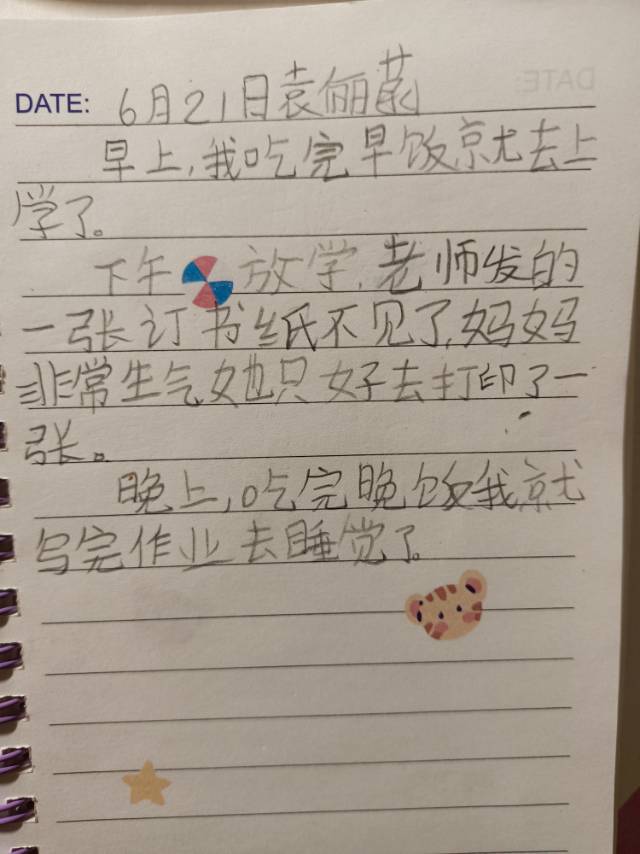 DATE: 6月21日袁俪菡
早上,我吃完早饭就去上
学了。
下午放学,老师发的
一张订书纸不见了,妈妈
非常生气她只好去打印了一
张。
晚上,吃完晚饭我就
写完作业去睡觉了。